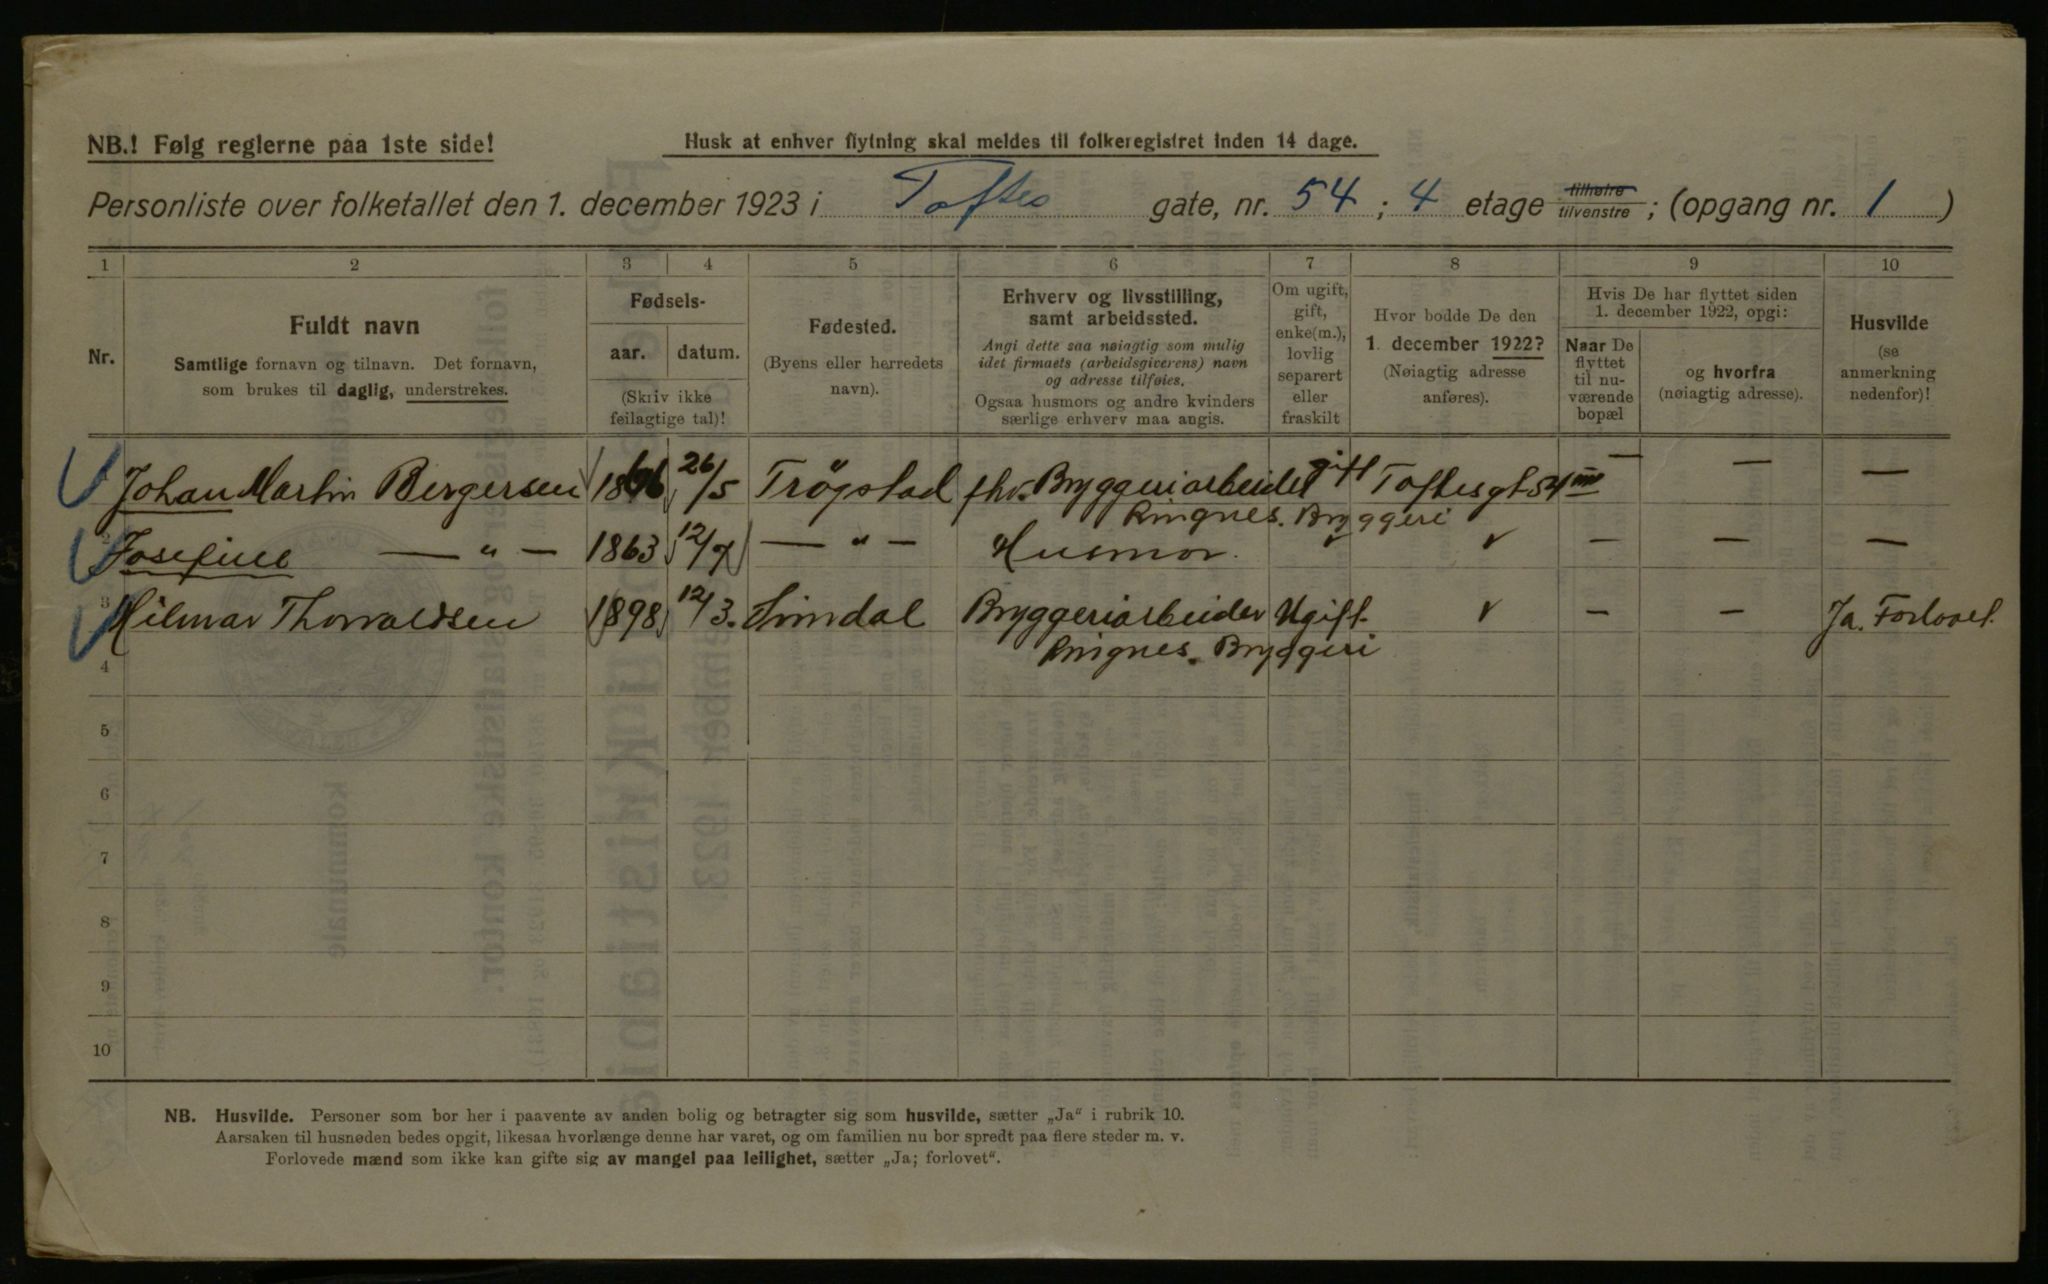 NB.! Følg reglerne paa 1ste side!
Husk at enhver flytning skal meldes til folkeregistret inden 14 dage.
Personliste over folketallet den 1. december 1923 i Toftes gate, nr. 54 ; 4 etage tilhøire tilvenstre ; (opgang nr. 1 )
1 2 3 4 5 6 7 8 9 10
Nr.
Fuldt navn
Samtlige fornavn og tilnavn. Det fornavn,
som brukes til daglig, understrekes.
Fødsels-
aar. datum.
(Skriv ikke
feilagtige tal)!
Fødested.
(Byens eller herredets
navn).
Erhverv og livsstilling,
samt arbeidssted.
Angi dette saa nøiagtig som mulig
idet firmaets (arbeidsgiverens) navn
og adresse tilføies.
Ogsaa husmors og andre kvinders
særlige erhverv maa angis.
Om ugift,
gift,
enke(m.),
lovlig
separert
eller
fraskilt
Hvor bodde De den
1. december 1922?
(Nøiagtig adresse
anføres).
Hvis De har flyttet siden
1. december 1922, opgi:
Naar De
flyttet
til nu-
værende
bopæl
og hvorfra
(nøiagtig adresse).
Husvilde
(se
anmerkning
nedenfor)!
Johan Martin Bergersen 26/5 Trøgstad fhv. Bryggeriarbeider gift Toftesgt 54 III — — —
Ringnes. Bryggeri
2 Josefine — „ — 1863 12/7 — „ — Husmor. — — —
3 Hilmar Thorvaldsen 1898 12/3. Bryggeriarbeider Ugift — — Ja. Forlovet.
Ringnes. Bryggeri
4
5
6
7
8
9
10
NB. Husvilde. Personer som bor her i paavente av anden bolig og betragter sig som husvilde, sætter „Ja“ i rubrik 10.
Aarsaken til husnøden bedes opgit, likesaa hvorlænge denne har varet, og om familien nu bor spredt paa flere steder m. v.
Forlovede mænd som ikke kan gifte sig av mangel paa leilighet, sætter „Ja; forlovet“.